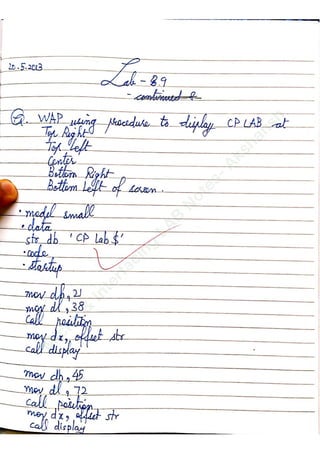 20.5.2013
Lab - 89
- continued
Q. WAP using procedure to display CP LAB at
Top Right
Top Left
Center
Bottom Right
Bottom Left of screen.
.model small
.data
str db 'CP Lab $'
.code
.startup
mov dh, 21
mov dl, 38
call position
mov dx, offset str
call display
mov dh, 45
mov dl, 72
call position
mov dx, offset str
call display